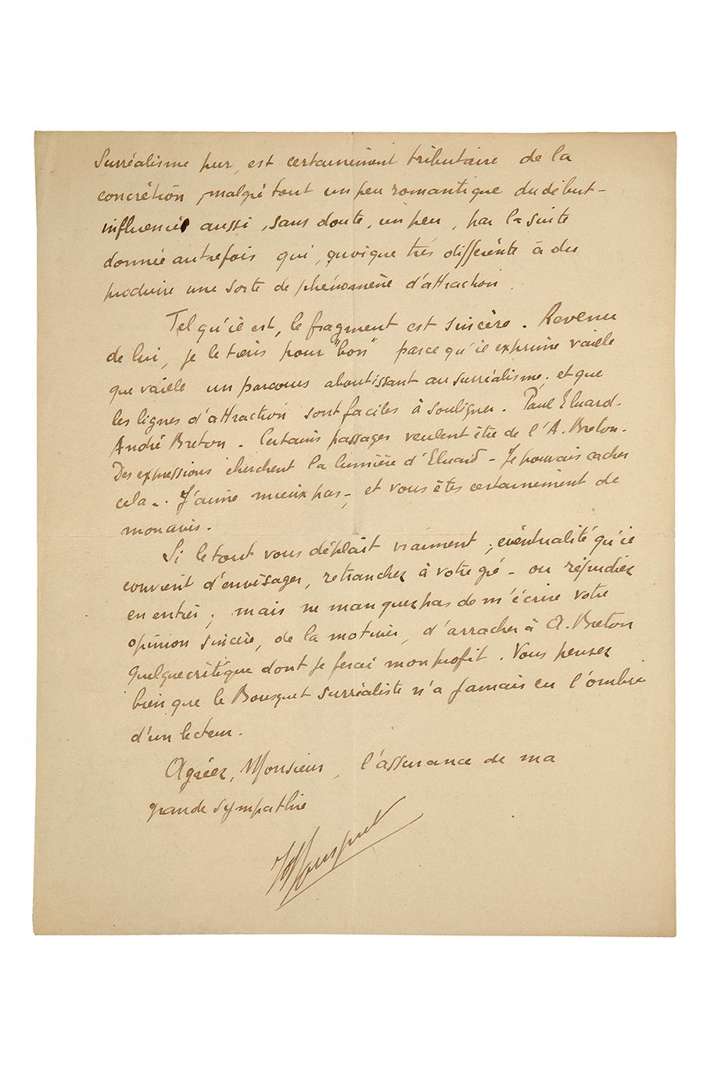 Surréalisme pur, est certainement tributaire de la
concrétion, malgré tout un peu romantique du début -
influencé aussi, sans doute, un peu, par la suite
donnée autrefois qui, quoique très différente à du
produire une sorte de phénomène d'attraction.
Tel qu'il est, le fragment est sincère. Revenu
de lui, je le tiens pour "bon" parce qu'il exprime vaille
que vaille un parcours aboutissant au surréalisme. et que
les lignes d'attraction sont faciles à souligner. Paul Eluard.
André Breton. Certains passages veulent être de l'A. Breton.
Des expressions cherchent la lumière d'Eluard - Je pouvais cacher
cela -. J'aime mieux pas -, et vous êtes certainement de
mon avis.
Si le tout vous déplaît vraiment, éventualité qu'il
convient d'envisager, retranchez à votre gré - ou répudiez
en entier; mais ne manquez pas de m'écrire votre
opinion sincère, de la motiver, d'arracher à A. Breton
quelque critique dont je ferai mon profit. Vous pensez
bien que le Bousquet surréaliste n'a jamais eu l'ombre
d'un lecteur.
Agréez, Monsieur, l'assurance de ma
grande sympathie
Bousquet